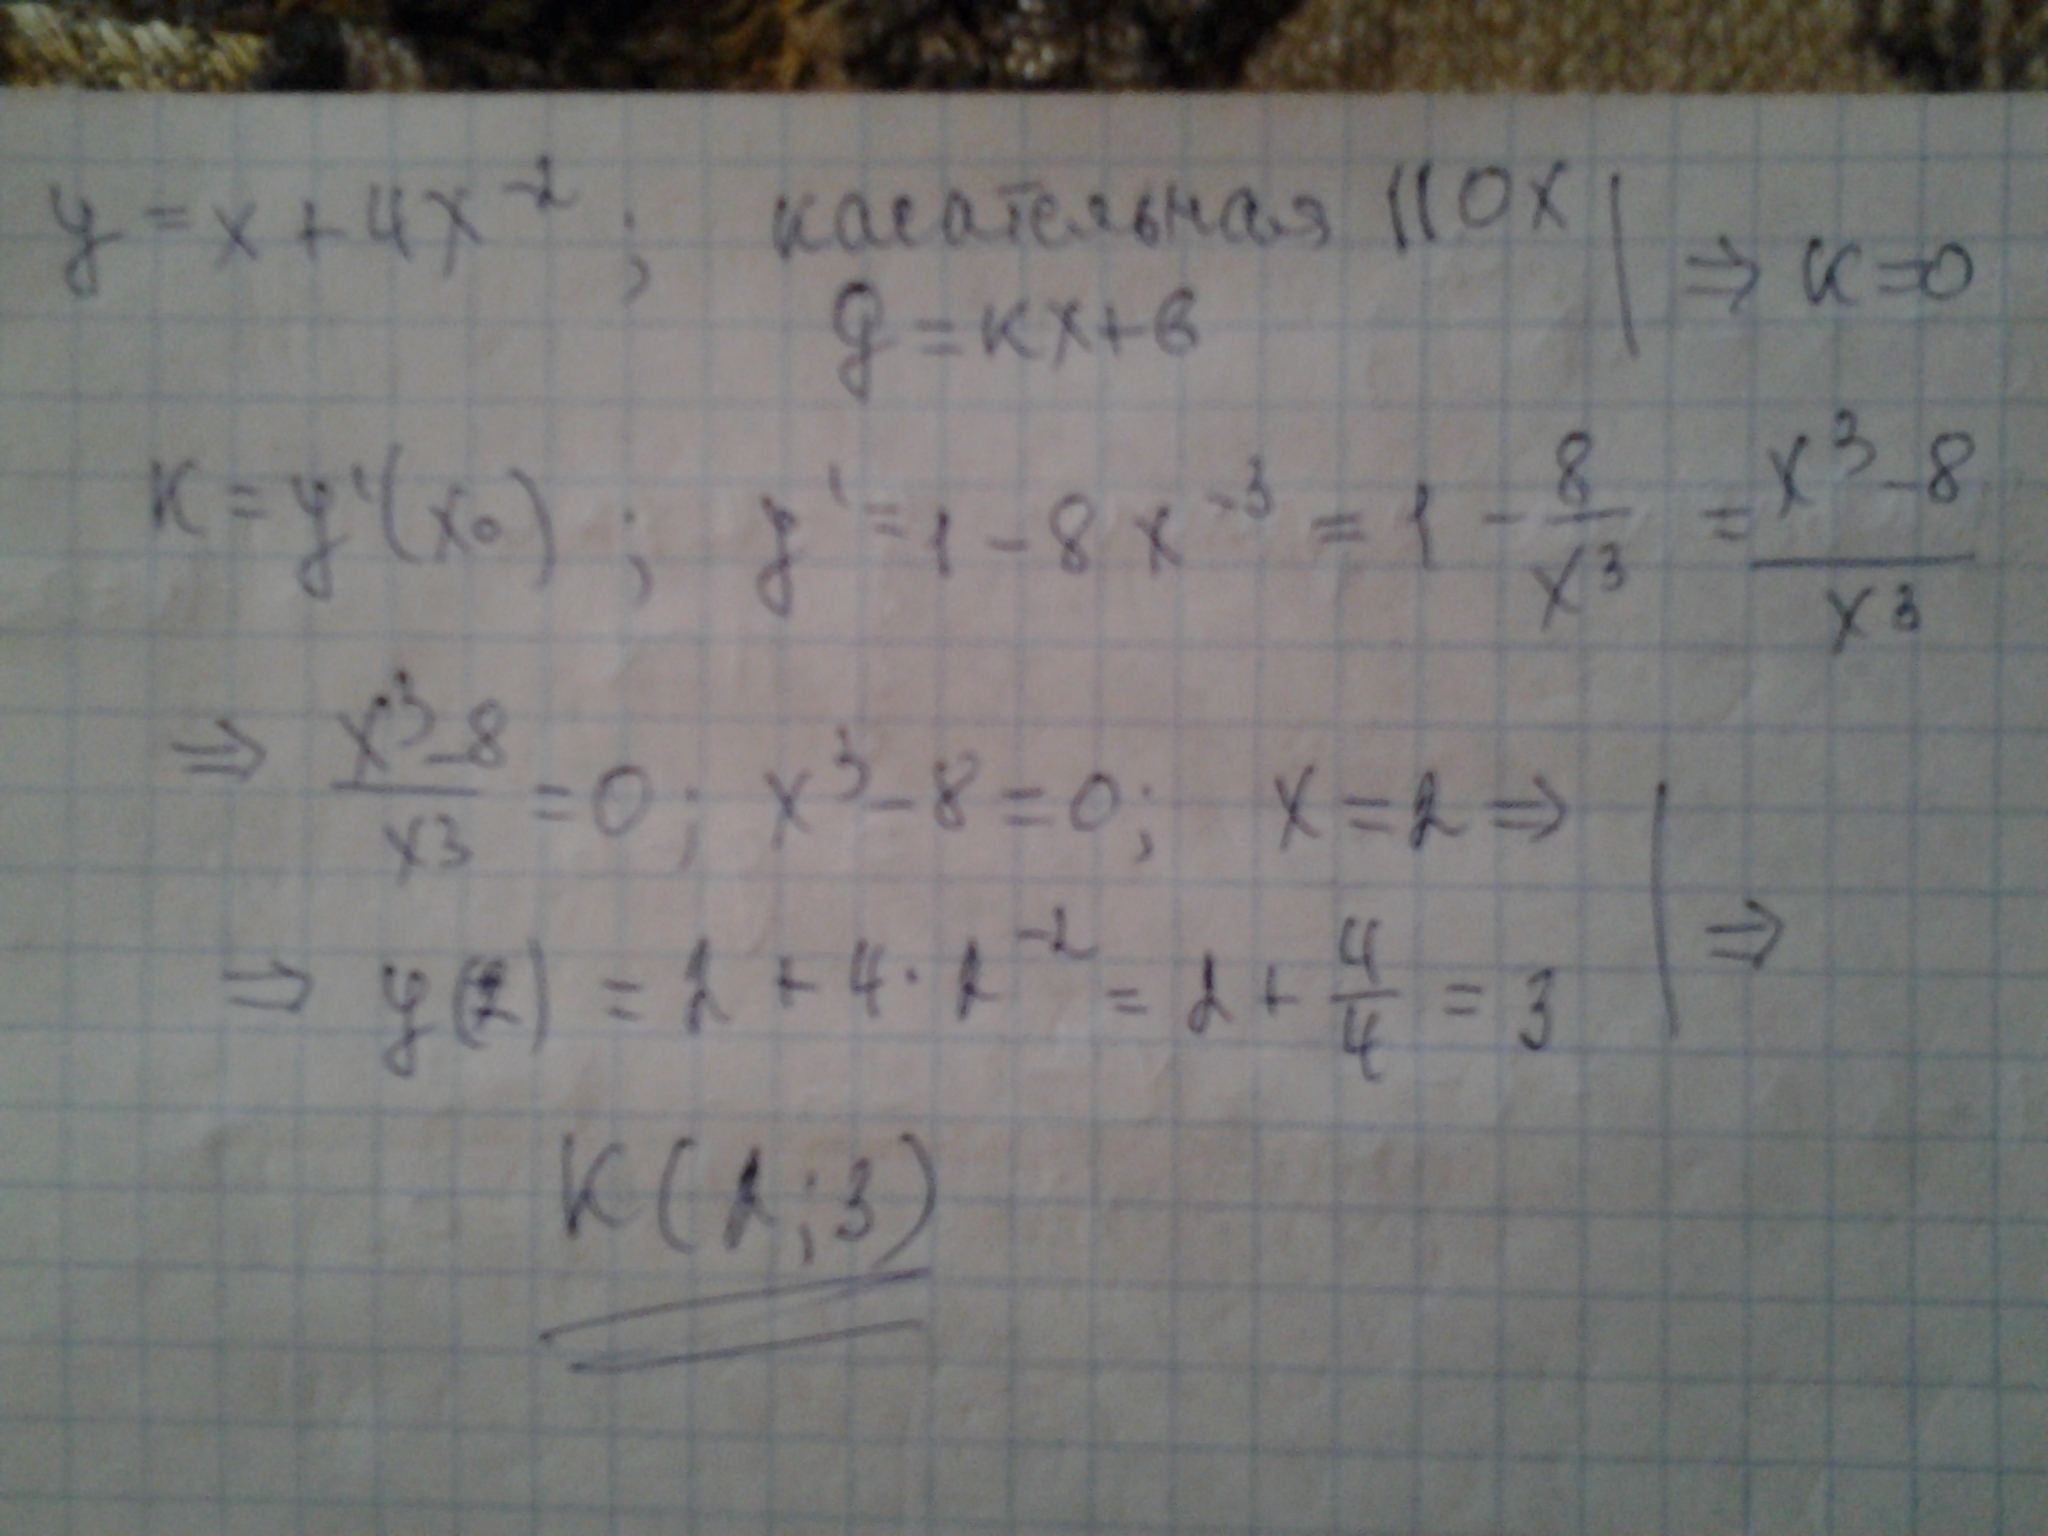 y = x + 4x⁻² ; касательная || OX | ⇒ к = 0
y = кx + в
к = y'(x₀) ; y' = 1 - 8x⁻³ = 1 - 8/x³ = (x³ - 8)/x³
⇒ (x³ - 8)/x³ = 0 ; x³ - 8 = 0 ; x = 2 ⇒
⇒ y(2) = 2 + 4 · 2⁻² = 2 + 4/4 = 3 | ⇒
К (2 ; 3)